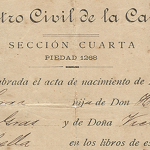 tro Civil de la Ca
SECCIÓN CUARTA
PIEDAD 1268
mbrada el acta de nacimiento de
hija de Don
Gras y de Doña
en los libros de es